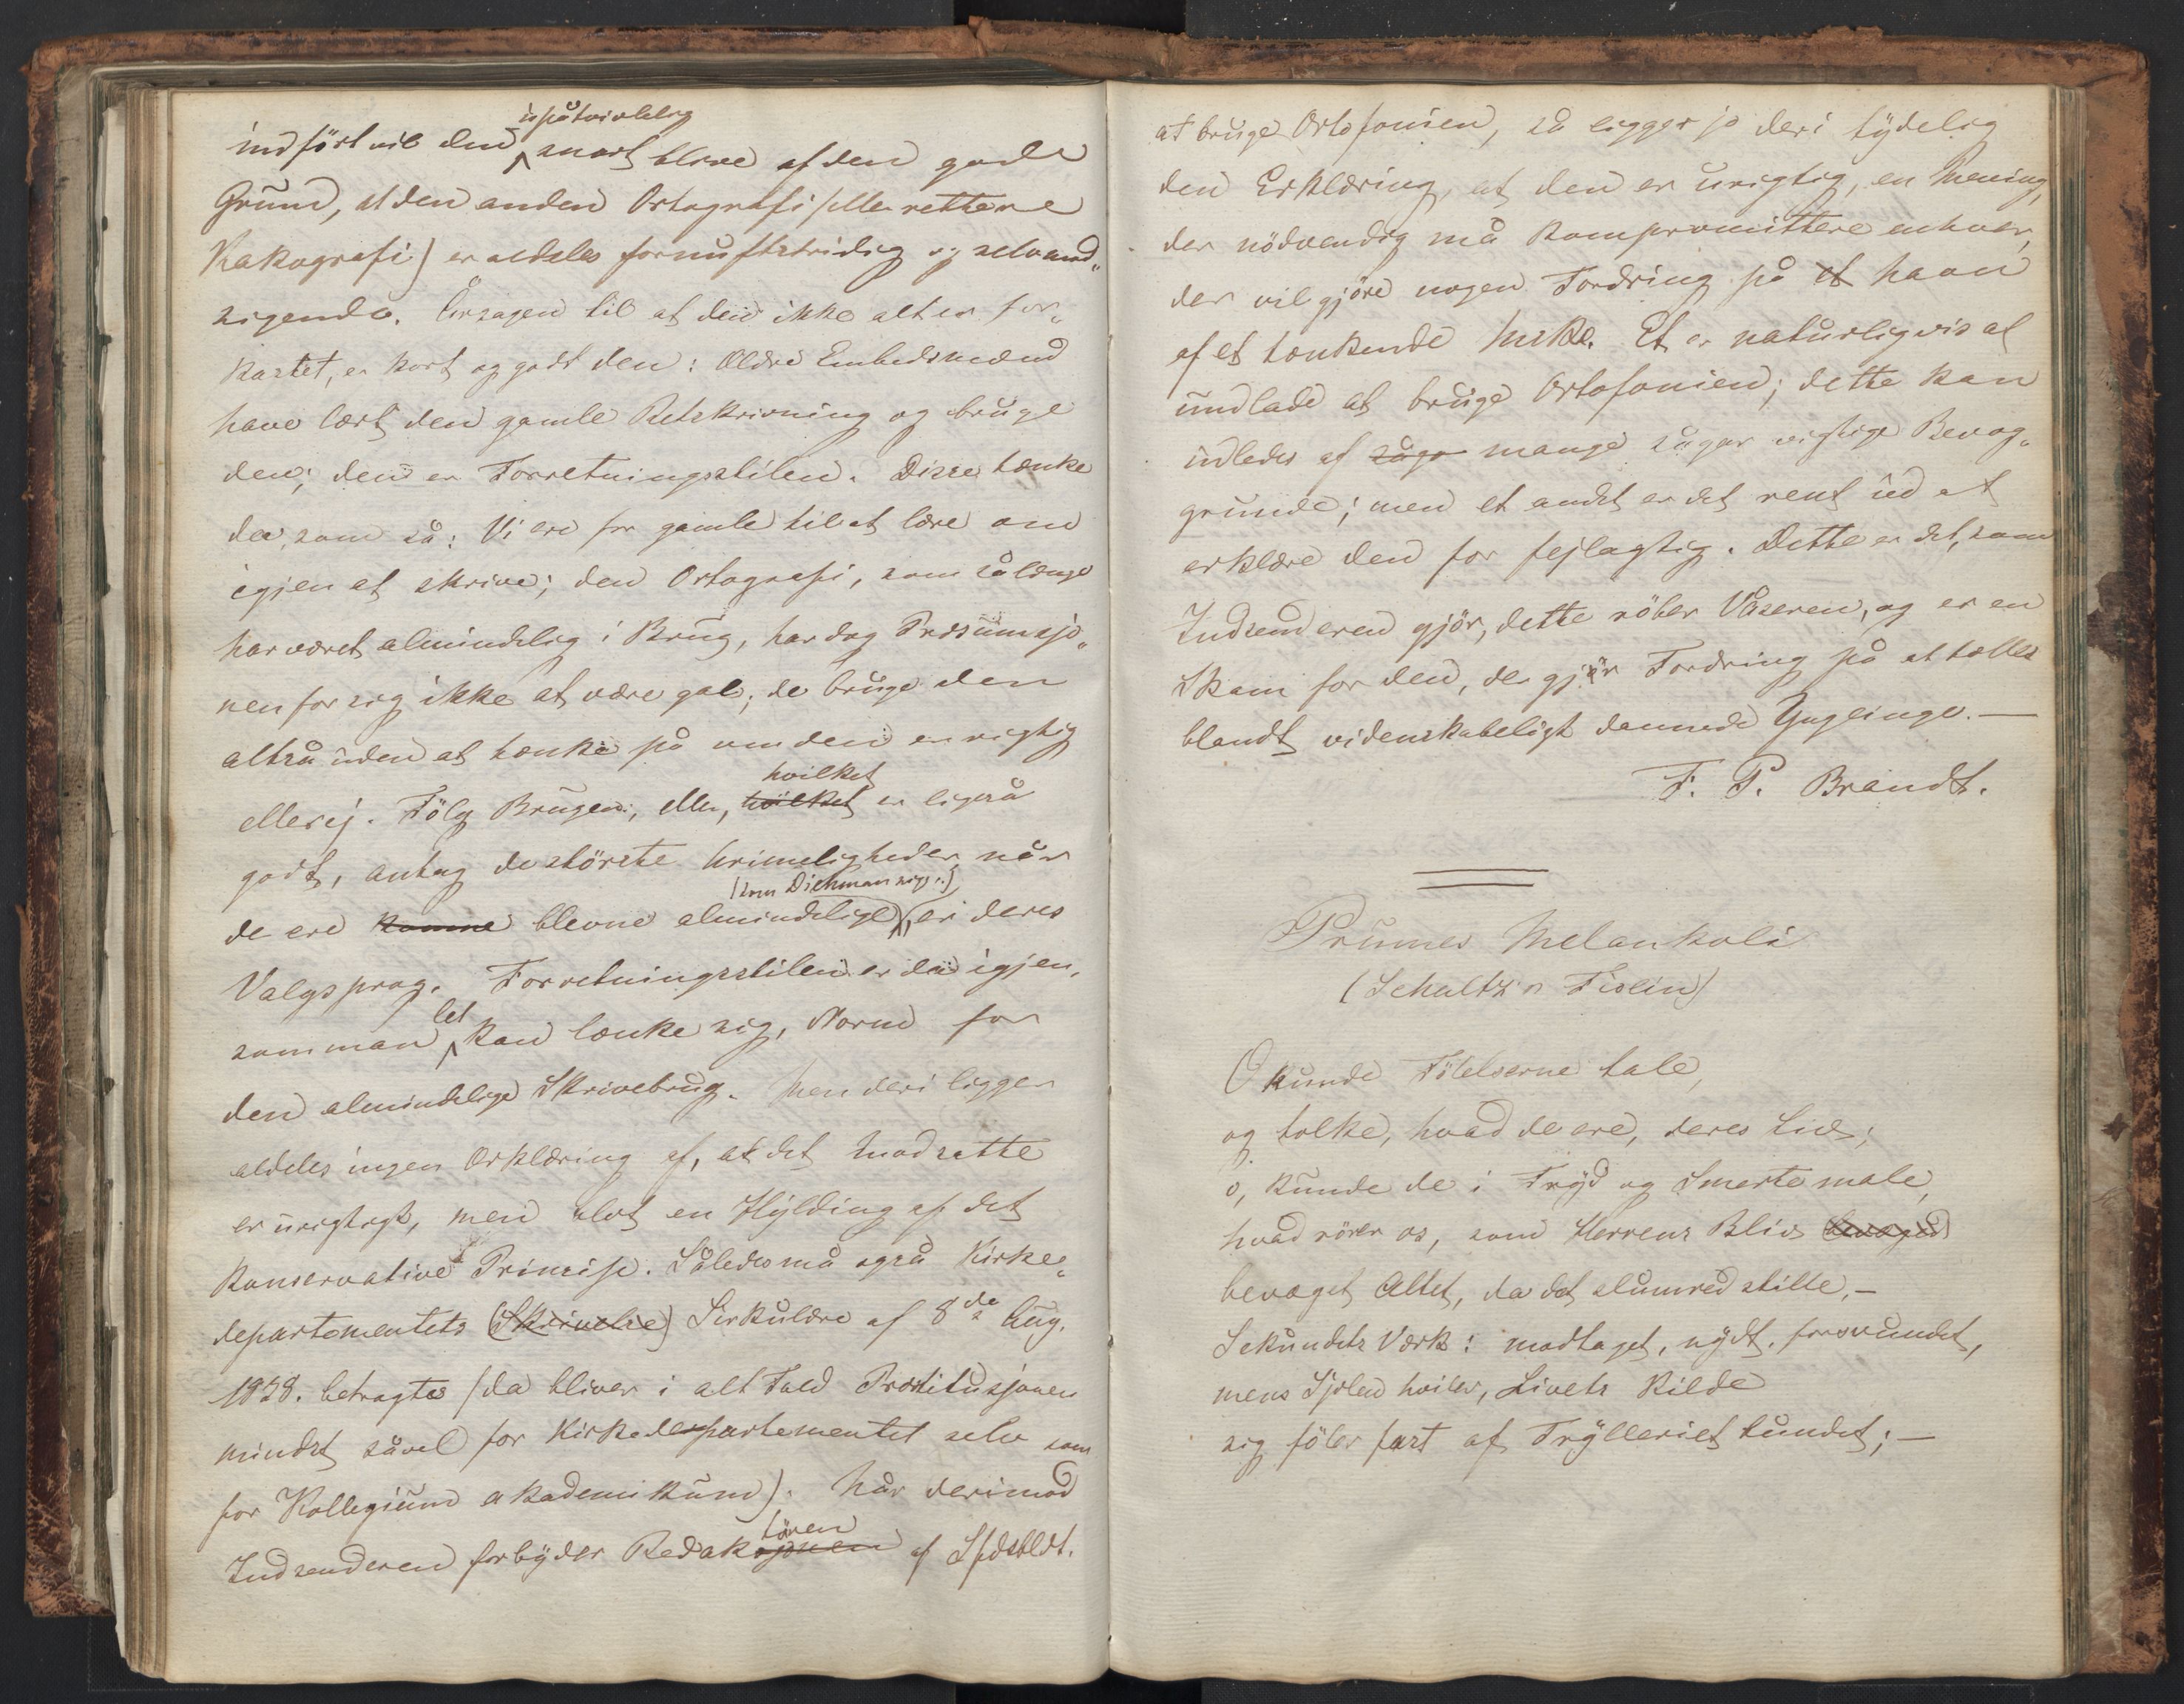 indført vil den upåtvivlelig snart blive af den gode
Grund, at den anden Ortografi (eller rettere
Kakografi) er aldeles fornuftstridig og selvmod„
sigende. Årsagen til at den ikke alt er for„
kastet, er kort og godt den: Ældre Embedsmænd
have lært den gamle Retskrivning og bruge
den; den er Forretningsstilen. Disse tænke
da som så: Vi ere for gamle til at lære om
igjen at skrive; den Ortografi, som så længe
har været almindelig i Brug, har dog Presumsjo„
nen for sig ikke at være gal; de bruge den
altså uden at tænke på om den er rigtig
eller ej. Fölg Brugen; eller, hvilket er ligeså
godt, antag de störste Urimeligheder når
de ere komne blevne almindelige (som Dichman siger), er deres
Valgsprog. Forretningsstilen er da igjen,
som man let kan tænke sig, Norm for
den almindelige Skrivebrug. Men deri ligger
aldeles ingen Erklæring af, at det Modsatte
er urigtigt, men blot en Hylding af det
konservative Princip. Således må også Kirke„
departementets (Skrivelse) Sirkulære af 8de Aug.
1828. betragtes (da bliver i alt Fald Prostitusjonen
mindst såvel for Kirkedepartementet selv som
for Kollegium akademikum). Når derimod
Indsenderen forbyder Redaktören af Sfdsbldt.
at bruge Ortofonien, så ligger jo deri tydelig
den Erklæring, at den er urigtig, en Mening,
der nödvendig må kompromittere enhver,
der vil gjöre nogen Fordring på et Navn
af et tænkende Menske. Et er naturligvis at
undlade at bruge Ortofonien; dette kan
indledes af såga mange sågar vigtige Bevæg„
grunde; men et andet er det rent ud at
erklære den for fejlagtig. Dette er det, som
Indsenderen gjör, dette röber Våseren, og er en
Skam for den, der gjör Fordring på at tælles
blandt videnskabeligt dannede Ynglinge. —
F. P. Brandt.
Prumes Melankoli
(Schultz's Fiolin)
O kunde Fölelserne tale,
og tolke, hvad de ere, deres Lid;
o, kunde de i Fryd og Smerte male,
hvad rörer os, som Herrens Bliv bevæged
bevæget Altet, da det slumred stille, —
Sekundets Værk: modtaget, nydt, forsvundet,
mens Sjælen hviler, Livets Kilde
sig föler fast af Trylleriet bundet; —